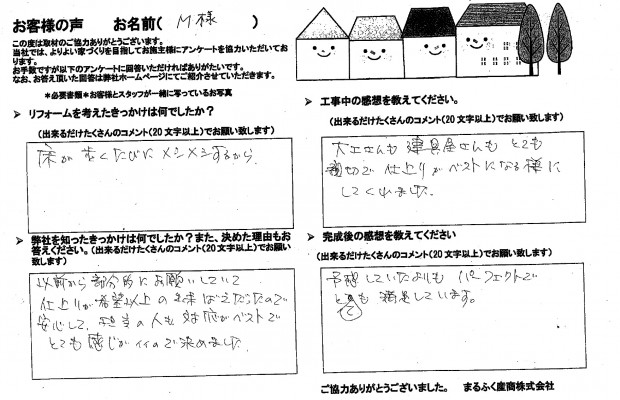 お客様の声 お名前( M様 )
この度は取材のご協力ありがとうございます。
当社では、よりよい家づくりを目指してお施主様にアンケートを協力いただいており
ります。
お手数ですが以下のアンケートに回答いただければありがたいです。
なお、お答え頂いた回答は弊社ホームページにてご紹介させていただきます。
*必要書類*お客様とスタッフが一緒に写っているお写真
➤ リフォームを考えたきっかけは何でしたか?
(出来るだけたくさんのコメント(20文字以上)でお願い致します)
床が歩くたびにメシメシするから。
➤ 弊社を知ったきっかけは何でしたか?また、決めた理由もお
答えください。(出来るだけたくさんのコメント(20文字以上)でお願い
致します)
以前から部分的にお願いしていて
仕上りが希望以上の出来ばえだったので
安心して、担当の人も対応がベストで
とても感じがイイので決めました
➤ 工事中の感想を教えてください。
(出来るだけたくさんのコメント(20文字以上)でお願い致します)
大工さんも建具屋さんもとても
親切で仕上りがベストになる様に
してくれました。
➤ 完成後の感想を教えてください
(出来るだけたくさんのコメント(20文字以上)でお願い致します)
予想していたよりもパーフェクトで
とても満足しています。
ご協力ありがとうございました。 まるふく産商株式会社